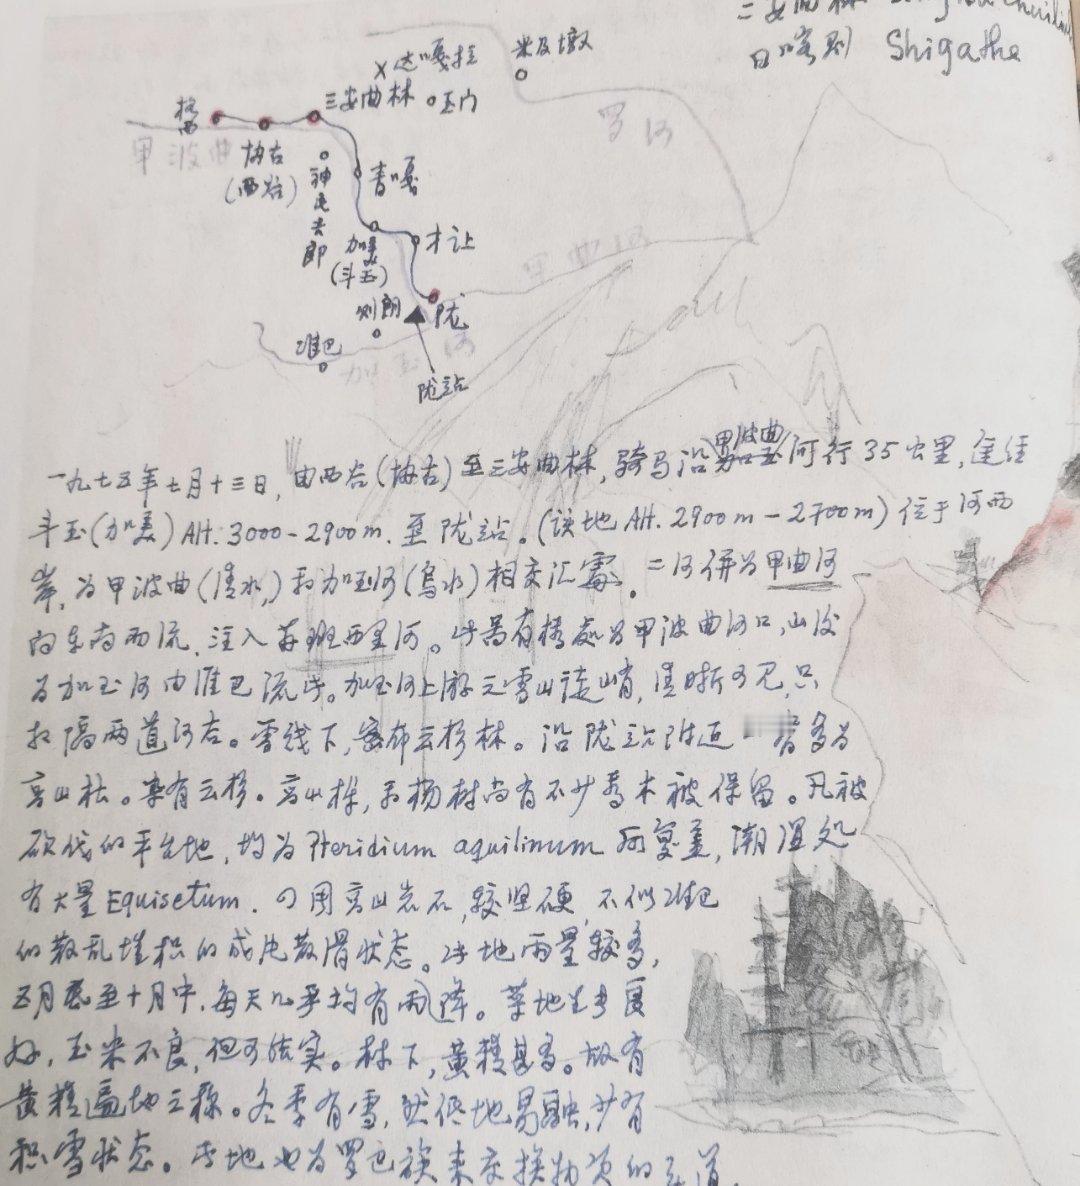 三安曲林
日喀则 Shigathe
米及墩
x 达嘎拉
三安曲林 玉门
罗河
甲波曲 协古
(西谷)
神 青嘎
加美 才让
(斗玉) 甲曲河
刘朗 陇
准巴 加玉河
陇站
一九七五年七月十三日,由西谷(协古)至三安曲林,骑马沿甲波曲河行35公里,途经
斗玉(加美)AH:3000-2900m.至陇站。(该地AH.2900m-2700m)位于河西
岸,为甲波曲(清水)和加玉河(乌水)相交汇处。二河併为甲曲河
向东南而流,注入西里河。此岛有桥处为甲波曲河口,山后
为加玉河由准巴流此。加玉河上游之雪山陡峭,清晰可见,只
相隔两道河右。雪线下,密布云杉林。沿陇站附近一带多为
高山松。兼有云杉。高山栎,和杨树尚有不少乔木被保留。凡被
砍伐的平生地,均为Pteridium aquilinum所复盖,潮湿处
有大量Equisetum.四周高山岩石,较坚硬,不似准巴
的散乱堆积的成片散滑状态。此地雨量较多,
五月底至十月中,每天几乎均有雨降。草地生长良
好,玉米不良,但可结实。林下,黄精甚多。故有
黄精遍地之称。冬季有雪,然低地易融,少有
积雪状态。此地也为罗巴族来交换物资的交道.